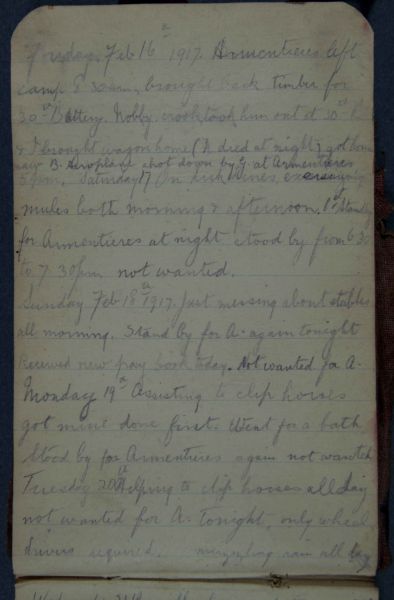 Friday, Feb 16th 1917. Armentieres left
camp 8.30am, brought back timber for
30th Battery. Nobby crook took him out at 30th B
& I brought wagon home (N died at night) got home
saw B. Aeroplane shot down by G at Armentieres
5 pm. Saturday 17 On sick lines, exercising
mules both morning & afternoon. Standby
for Armentieres at night stood by from 6 30
to 7.30pm not wanted.
Sunday Feb 18th 1917. Just messing about stables
all morning. Stand by for A. again tonight
Received new pay book today. Not wanted for A.
Monday 19th Assisting to clip horses
got mine done first. Went for a bath
Stood by for Armentieres again not wanted
Tuesday 20th Helping to clip horses all day
not wanted for A. Tonight, only wheel
drivers required. rain all day